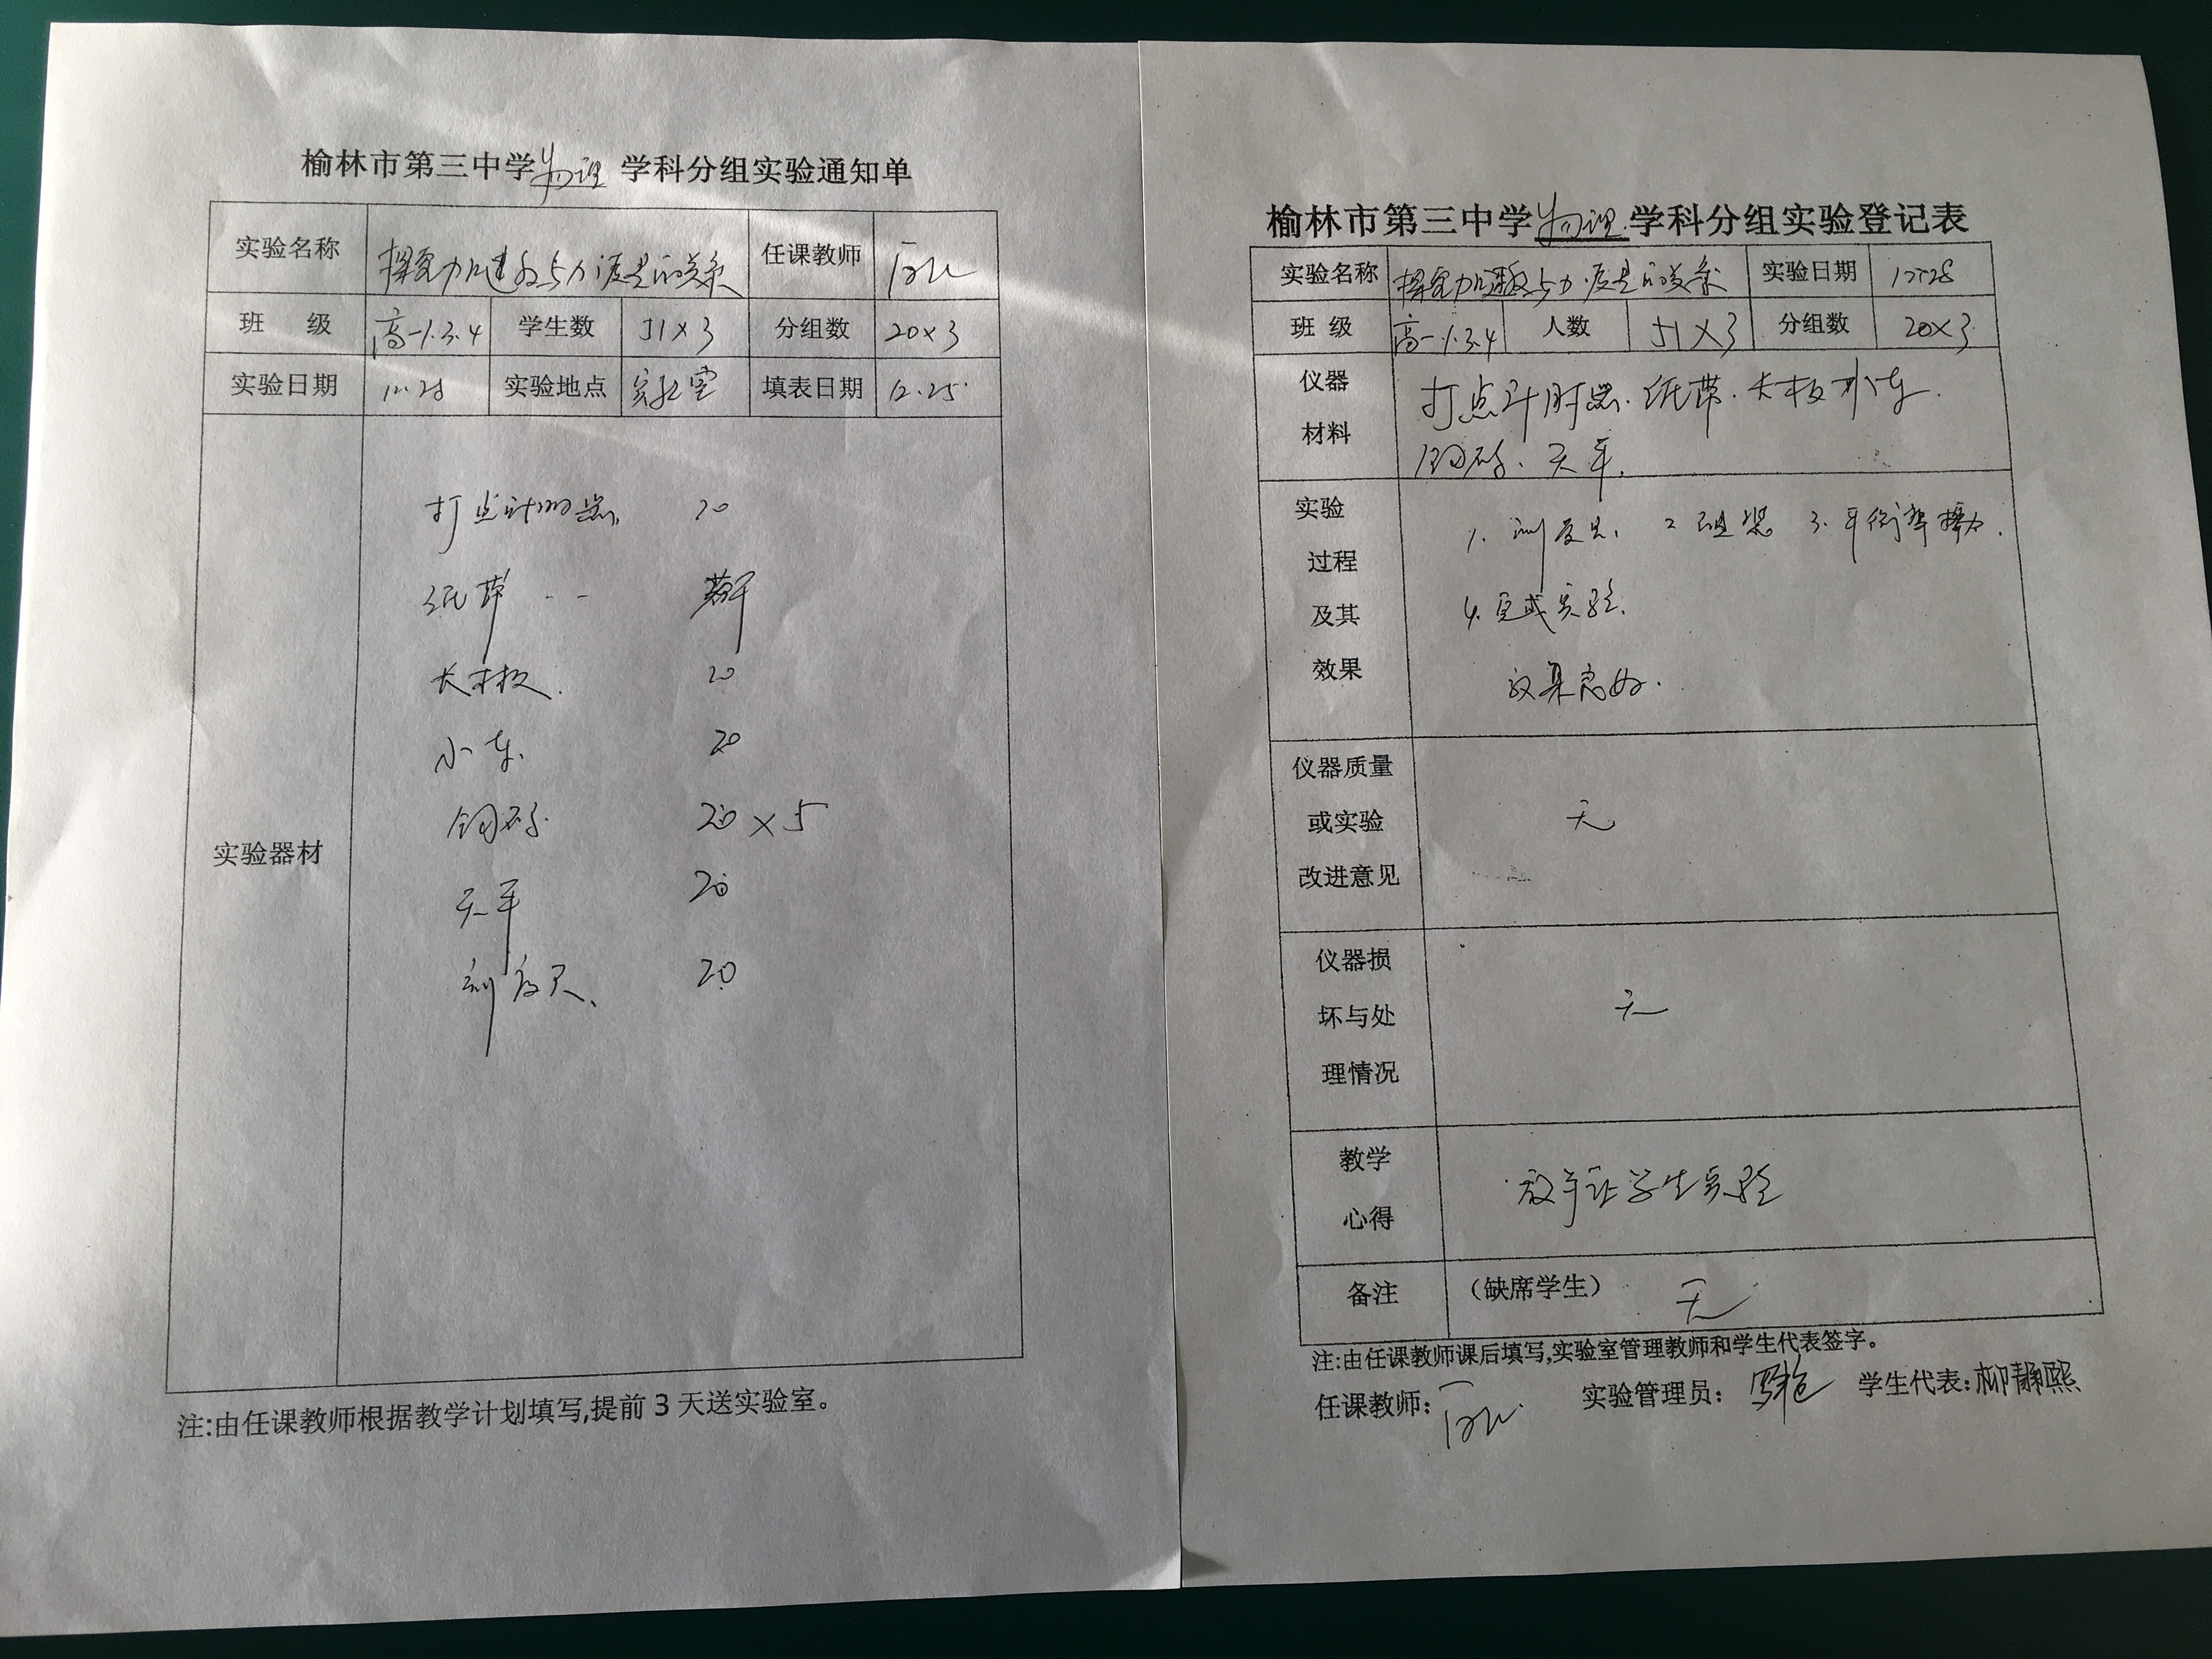 榆林市第三中学物理 学科分组实验通知单
实验名称 探究加速度与力质量的关系 任课教师
班 级 高一1.3.4 学生数 51×3 分组数 20×3
实验日期 12.28 实验地点 实验室 填表日期 12.25
实验器材
打点计时器 20
纸带 若干
长木板 20
小车 20
钩码 20×5
天平 20
刻度尺 20
注:由任课教师根据教学计划填写,提前3天送实验室。
榆林市第三中学物理学科分组实验登记表
实验名称 探究加速度与力质量的关系 实验日期 12.28
班 级 高一1.3.4 人数 51×3 分组数 20×3
仪器材料
打点计时器.纸带.长木板小车.
钩码.天平.
实验过程及其效果
1. 测质量、 2 组装 3.平衡摩擦力.
4.完成实验.
效果良好.
仪器质量或实验改进意见 无
仪器损坏与处理情况 无
教学心得 放手让学生实验
备注 (缺席学生) 无
注:由任课教师课后填写,实验室管理教师和学生代表签字。
任课教师: 实验管理员: 学生代表:柳静熙